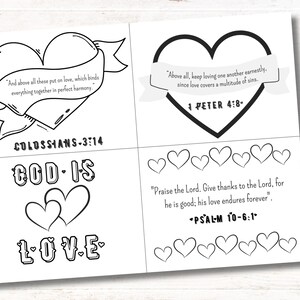 "And above all these put on love, which binds
everything together in perfect harmony.
COLOSSIANS•3:14
"Above all, keep loving one another earnestly,
since love covers a multitude of sins.
1 PETER 4:8•
GOD•IS
LOVE
"Praise the Lord. Give thanks to the Lord, for
he is good; his love endures forever".
•PSALM 10-6:1•